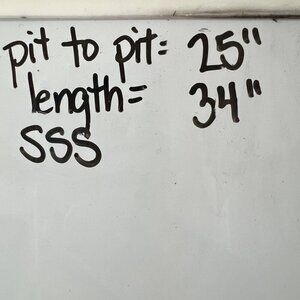 pit to pit= 25"
length= 34"
SSS